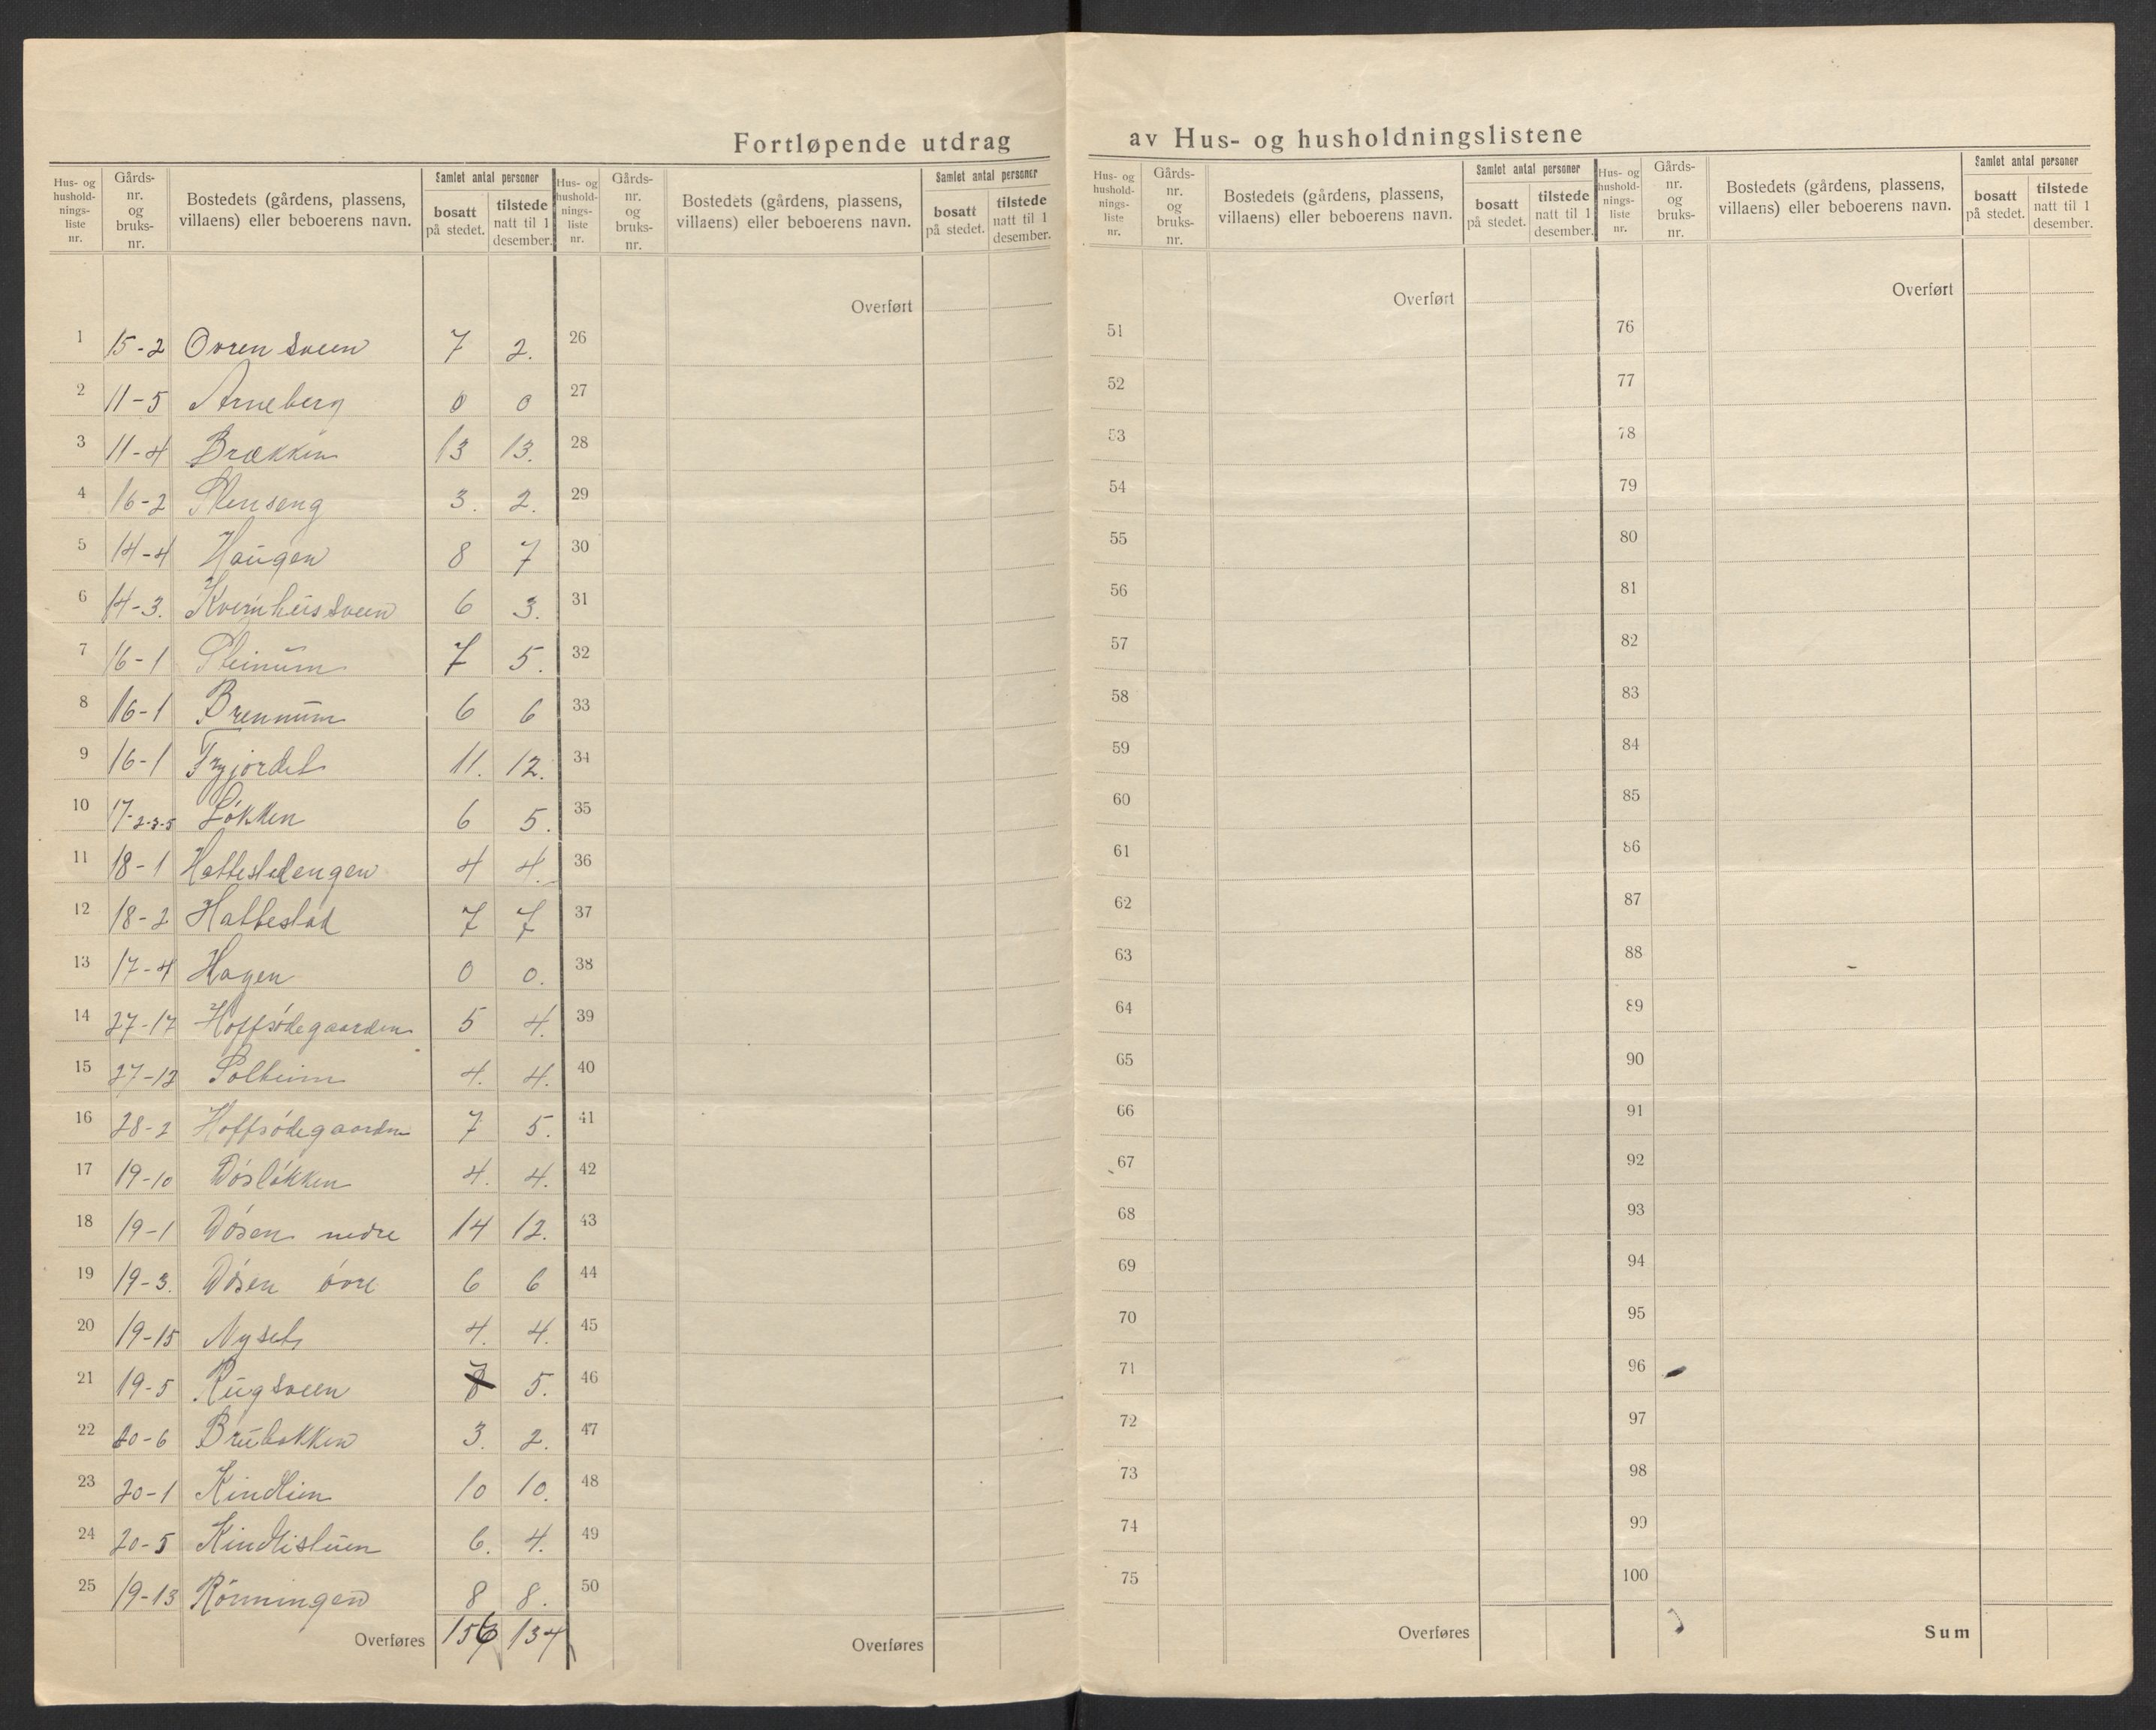 Fortløpende utdrag av Hus- og husholdningslistene
Hus- og husholdningsliste nr. Gårdsnr. og bruksnr. Bostedets (gårdens, plassens, villaens) eller beboerens navn. Samlet antal personer bosatt på stedet. tilstede natt til 1 desember.
Hus- og husholdningsliste nr. Gårdsnr. og bruksnr. Bostedets (gårdens, plassens, villaens) eller beboerens navn. Samlet antal personer bosatt på stedet. tilstede natt til 1 desember.
Hus- og husholdningsliste nr. Gårdsnr. og bruksnr. Bostedets (gårdens, plassens, villaens) eller beboerens navn. Samlet antal personer bosatt på stedet. tilstede natt til 1 desember.
Hus- og husholdningsliste nr. Gårdsnr. og bruksnr. Bostedets (gårdens, plassens, villaens) eller beboerens navn. Samlet antal personer bosatt på stedet. tilstede natt til 1 desember.
Overført Overført Overført
1 15-2 Ovrensveen 7 2. 26 51 76
2 11-5 Arneberg 0 0 27 52 77
3 11-4 Brækken 13 13. 28 53 78
4 16-2 Stenseng 3. 2. 29 54 79
5 14-4 Haugen 8 7 30 55 80
6 14-3. Kvernhussveen 6 3. 31 56 81
7 16-1 Steinum 7 5. 32 57 82
8 16-1 Brennum 6 6 33 58 83
9 16-1 Fryjordet 11. 12. 34 59 84
10 17-2-3-5 Løkken 6 5. 35 60 85
11 18-1 Hattestadengen 4 4. 36 61 86
12 18-2 Hattestad 7 7 37 62 87
13 17-4 Hagen 0 0. 38 63 88
14 27-17 Hoffsødegaarden 5 4. 39 64 89
15 27-12 Solheim 4. 4. 40 65 90
16 28-2 Hoffsødegaarden 7 5. 41 66 91
17 19-10 Døsløkken 4. 4. 42 67 92
18 19-1 Døsen nedre 14 12. 43 68 93
19 19-3. Døsen øvre 6 6 44 69 94
20 19-15 Nyset 4. 4. 45 70 95
21 19-5 Rugsveen 7 5. 46 71 96
22 20-6 Brubakken 3. 2. 47 72 97
23 20-1 Kindlien 10 10. 48 73 98
24 20-5 Kindlistuen 6. 4. 49 74 99
25 19-13 Rønningen 8 8. 50 75 100
Overføres 156 134 Overføres Overføres Sum